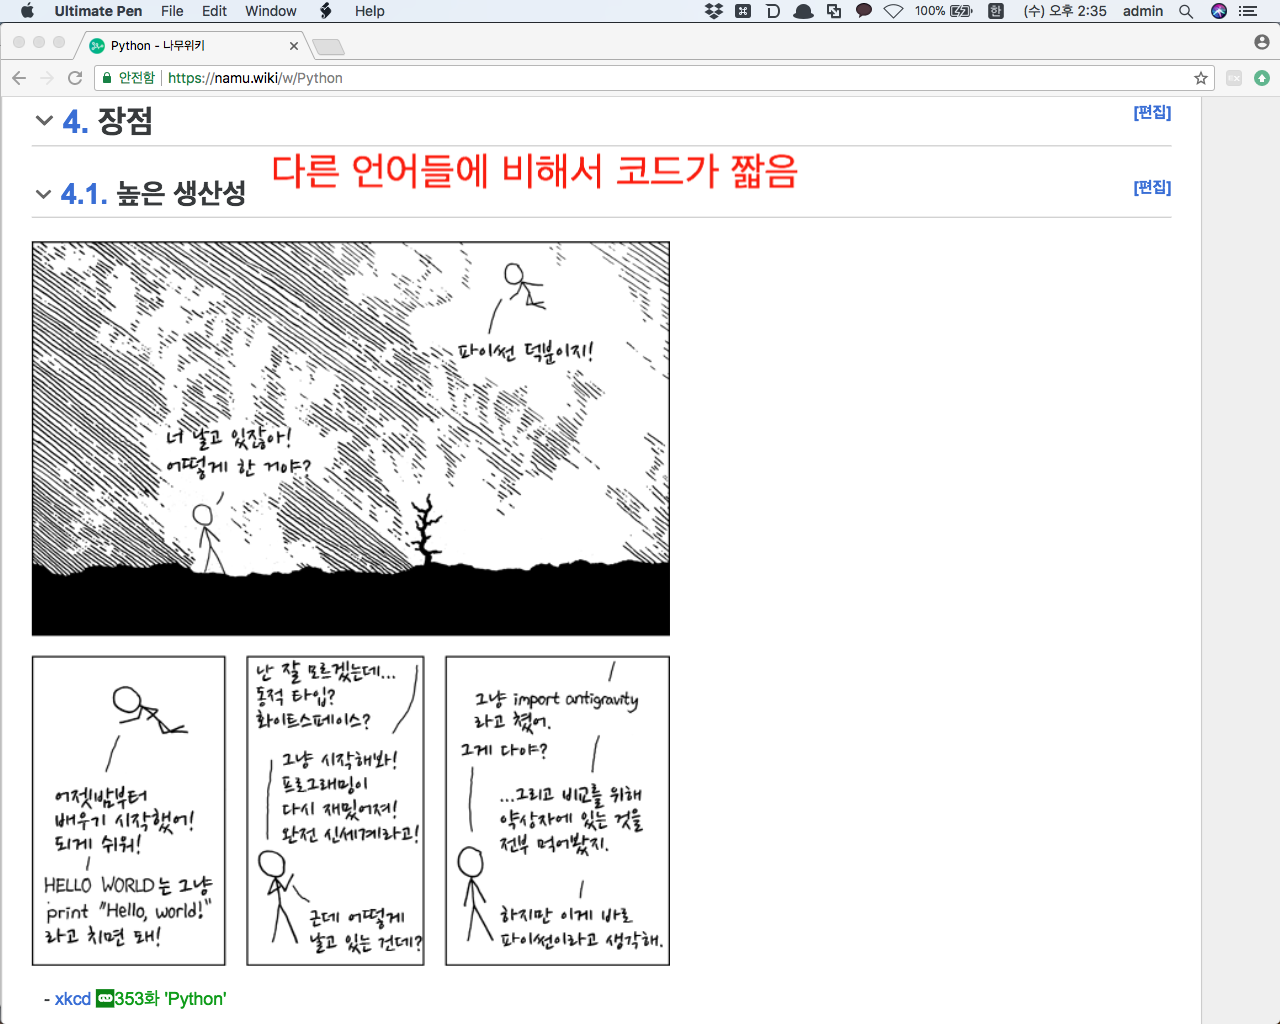 Ultimate Pen File Edit Window Help 100% 한 (수) 오후 2:35 admin
Python - 나무위키
안전함 https://namu.wiki/w/Python
4. 장점 [편집]
다른 언어들에 비해서 코드가 짧음
4.1. 높은 생산성 [편집]
파이썬 덕분이지!
너 날고 있잖아!
어떻게 한 거야?
어젯밤부터
배우기 시작했어!
되게 쉬워!
HELLO WORLD는 그냥
print "Hello, world!"
라고 치면 돼!
난 잘 모르겠는데...
동적 타입?
화이트스페이스?
그냥 시작해봐!
프로그래밍이
다시 재밌어져!
완전 신세계라고!
근데 어떻게
날고 있는 건데?
그냥 import antigravity
라고 쳤어.
그게 다야?
...그리고 비교를 위해
약상자에 있는 것을
전부 먹어봤지.
하지만 이게 바로
파이썬이라고 생각해.
- xkcd 353화 'Python'